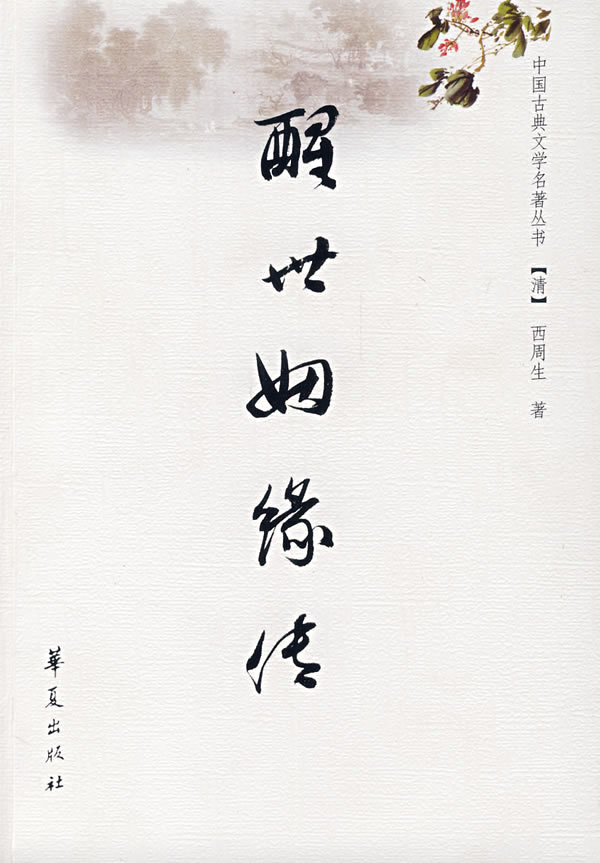 中国古典文学名著丛书 【清】 西周生 著
醒世姻缘传
華夏出版社